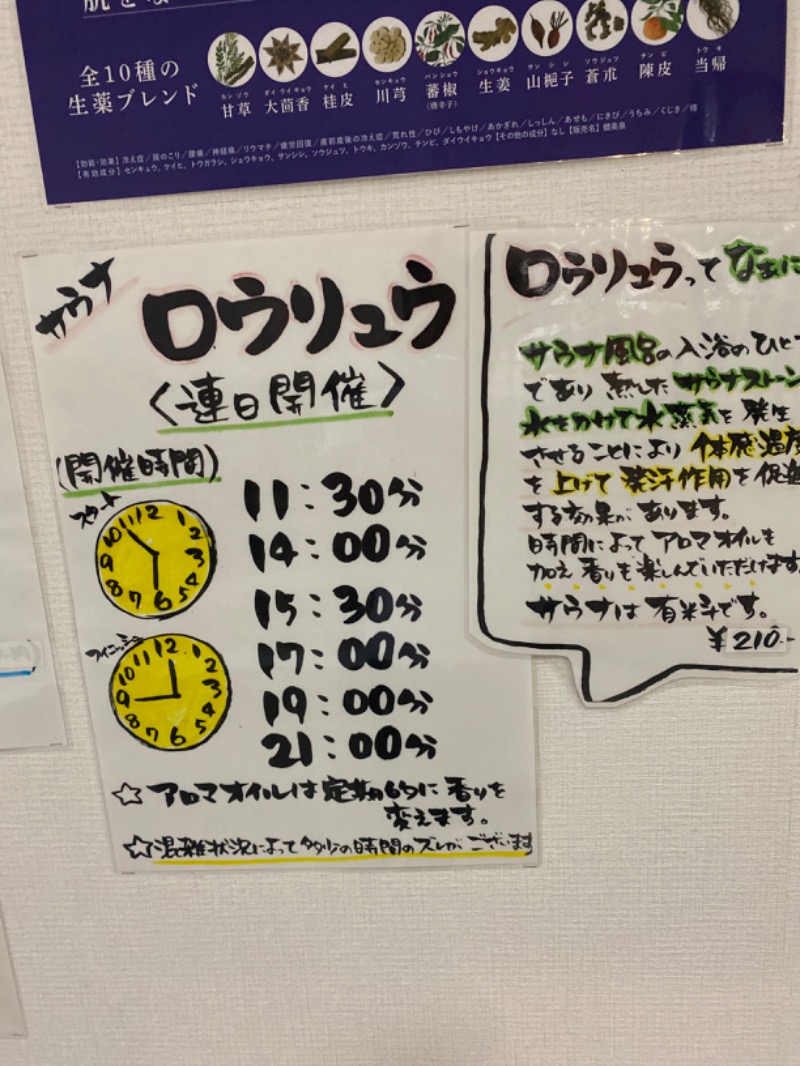 全10種の
生薬ブレンド
カンゾウ ダイウイキョウ ケイヒ センキュウ バンショウ ショウキョウ サンシシ ソウジュツ チンピ トウキ
甘草 大茴香 桂皮 川芎 蕃椒 生姜 山梔子 蒼朮 陳皮 当帰
(唐辛子)
【効能・効果】冷え症/肩のこり/腰痛/神経痛/リウマチ/疲労回復/産前産後の冷え症/荒れ性/ひび/しもやけ/あかぎれ/しっしん/あせも/にきび/うちみ/くじき/痔
【有効成分】センキュウ、ケイヒ、トウガラシ、ショウキョウ、サンシシ、ソウジュツ、トウキ、カンゾウ、チンピ、ダイウイキョウ【その他の成分】なし【販売名】健美泉
サウナ
ロウリュウ
〈連日開催〉
(開催時間)
スタート
12 1 2 3 4 5 6 7 8 9 10 11
フィニッシュ
12 1 2 3 4 5 6 7 8 9 10 11
11:30分
14:00分
15:30分
17:00分
19:00分
21:00分
☆アロマオイルは定期的に香りを
変えます。
☆混雑状況によって多少の時間のズレがございます
ロウリュウってなぁに
サウナ風呂の入浴のひと
であり熱したサウナストーン
水をかけて水蒸気を発生
させることにより体感温度
を上げて発汗作用を促進
する効果があります。
時間によってアロマオイルも
加え香りを楽しんでいただけます
サウナは有料です。
¥210.-